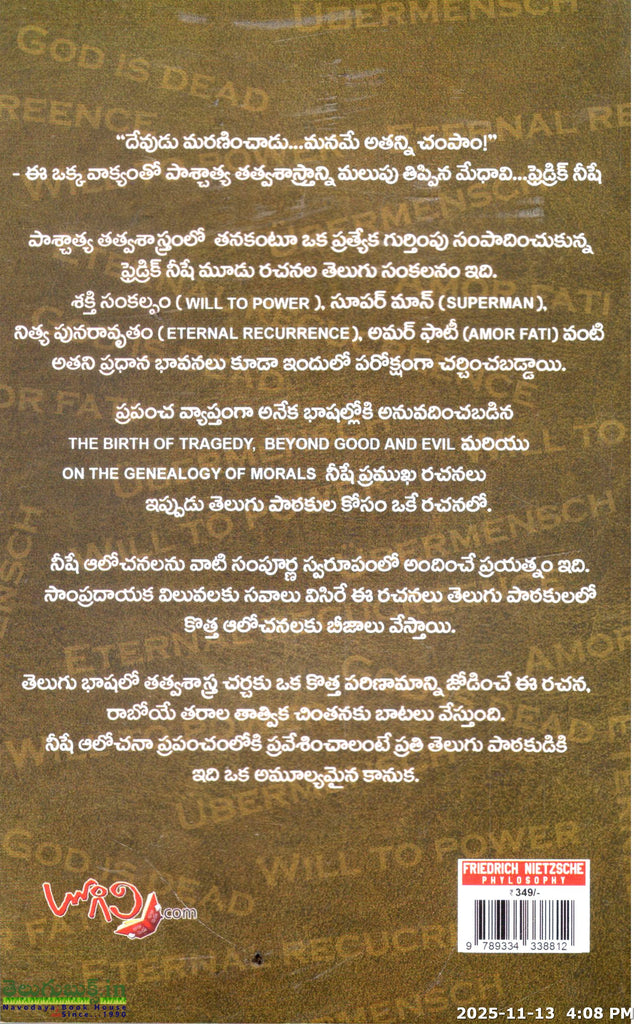 “దేవుడు మరణించాడు...మనమే అతన్ని చంపాం!”
- ఈ ఒక్క వాక్యంతో పాశ్చాత్య తత్వశాస్త్రాన్ని మలుపు తిప్పిన మేధావి...ఫ్రెడ్రిక్ నీషే
పాశ్చాత్య తత్వశాస్త్రంలో తనకంటూ ఒక ప్రత్యేక గుర్తింపు సంపాదించుకున్న
ఫ్రెడ్రిక్ నీషే మూడు రచనల తెలుగు సంకలనం ఇది.
శక్తి సంకల్పం ( WILL TO POWER ), సూపర్ మాన్ (SUPERMAN),
నిత్య పునరావృతం ( ETERNAL RECURRENCE ), అమర్ ఫాటీ (AMOR FATI) వంటి
అతని ప్రధాన భావనలు కూడా ఇందులో పరోక్షంగా చర్చించబడ్డాయి.
ప్రపంచ వ్యాప్తంగా అనేక భాషల్లోకి అనువదించబడిన
THE BIRTH OF TRAGEDY, BEYOND GOOD AND EVIL మరియు
ON THE GENEALOGY OF MORALS నీషే ప్రముఖ రచనలు
ఇప్పుడు తెలుగు పాఠకుల కోసం ఒకే రచనలో.
నీషే ఆలోచనలను వాటి సంపూర్ణ స్వరూపంలో అందించే ప్రయత్నం ఇది.
సాంప్రదాయక విలువలకు సవాలు విసిరే ఈ రచనలు తెలుగు పాఠకులలో
కొత్త ఆలోచనలకు బీజాలు వేస్తాయి.
తెలుగు భాషలో తత్వశాస్త్ర చర్చకు ఒక కొత్త పరిణామాన్ని జోడించే ఈ రచన,
రాబోయే తరాల తాత్విక చింతనకు బాటలు వేస్తుంది.
నీషే ఆలోచనా ప్రపంచంలోకి ప్రవేశించాలంటే ప్రతి తెలుగు పాఠకుడికి
ఇది ఒక అమూల్యమైన కానుక.
FRIEDRICH NIETZSCHE
PHYLOSOPHY
₹ 349/-
9 789334 338812
.com
తెలుగుబుక్.in
Navodaya Book House
Since...1990
2025-11-13 4:08 PM